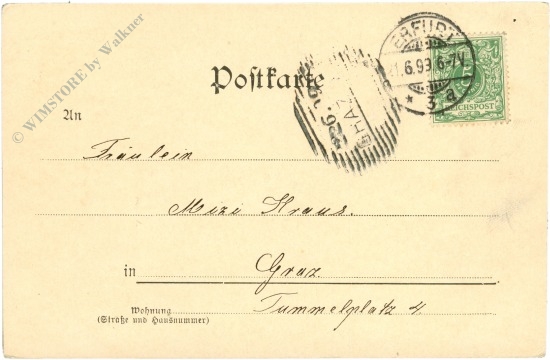 © WIMSTORE by Walkner
Postkarte
ERFURT
1.6.99.6-7V.
* 3 a
REICHSPOST
An
Fräulein
Mizi Kraus.
in Graz
Tummelplatz 4.
Wohnung
(Straße und Hausnummer)